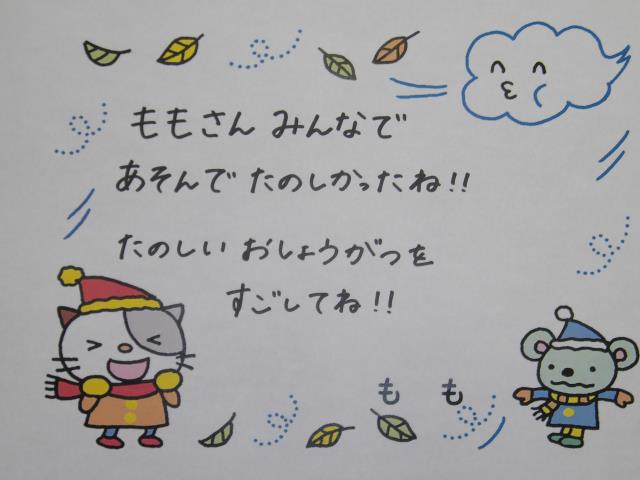 ももさん みんなで
あそんで たのしかったね!!
たのしい おしょうがつを
すごしてね!!
もも